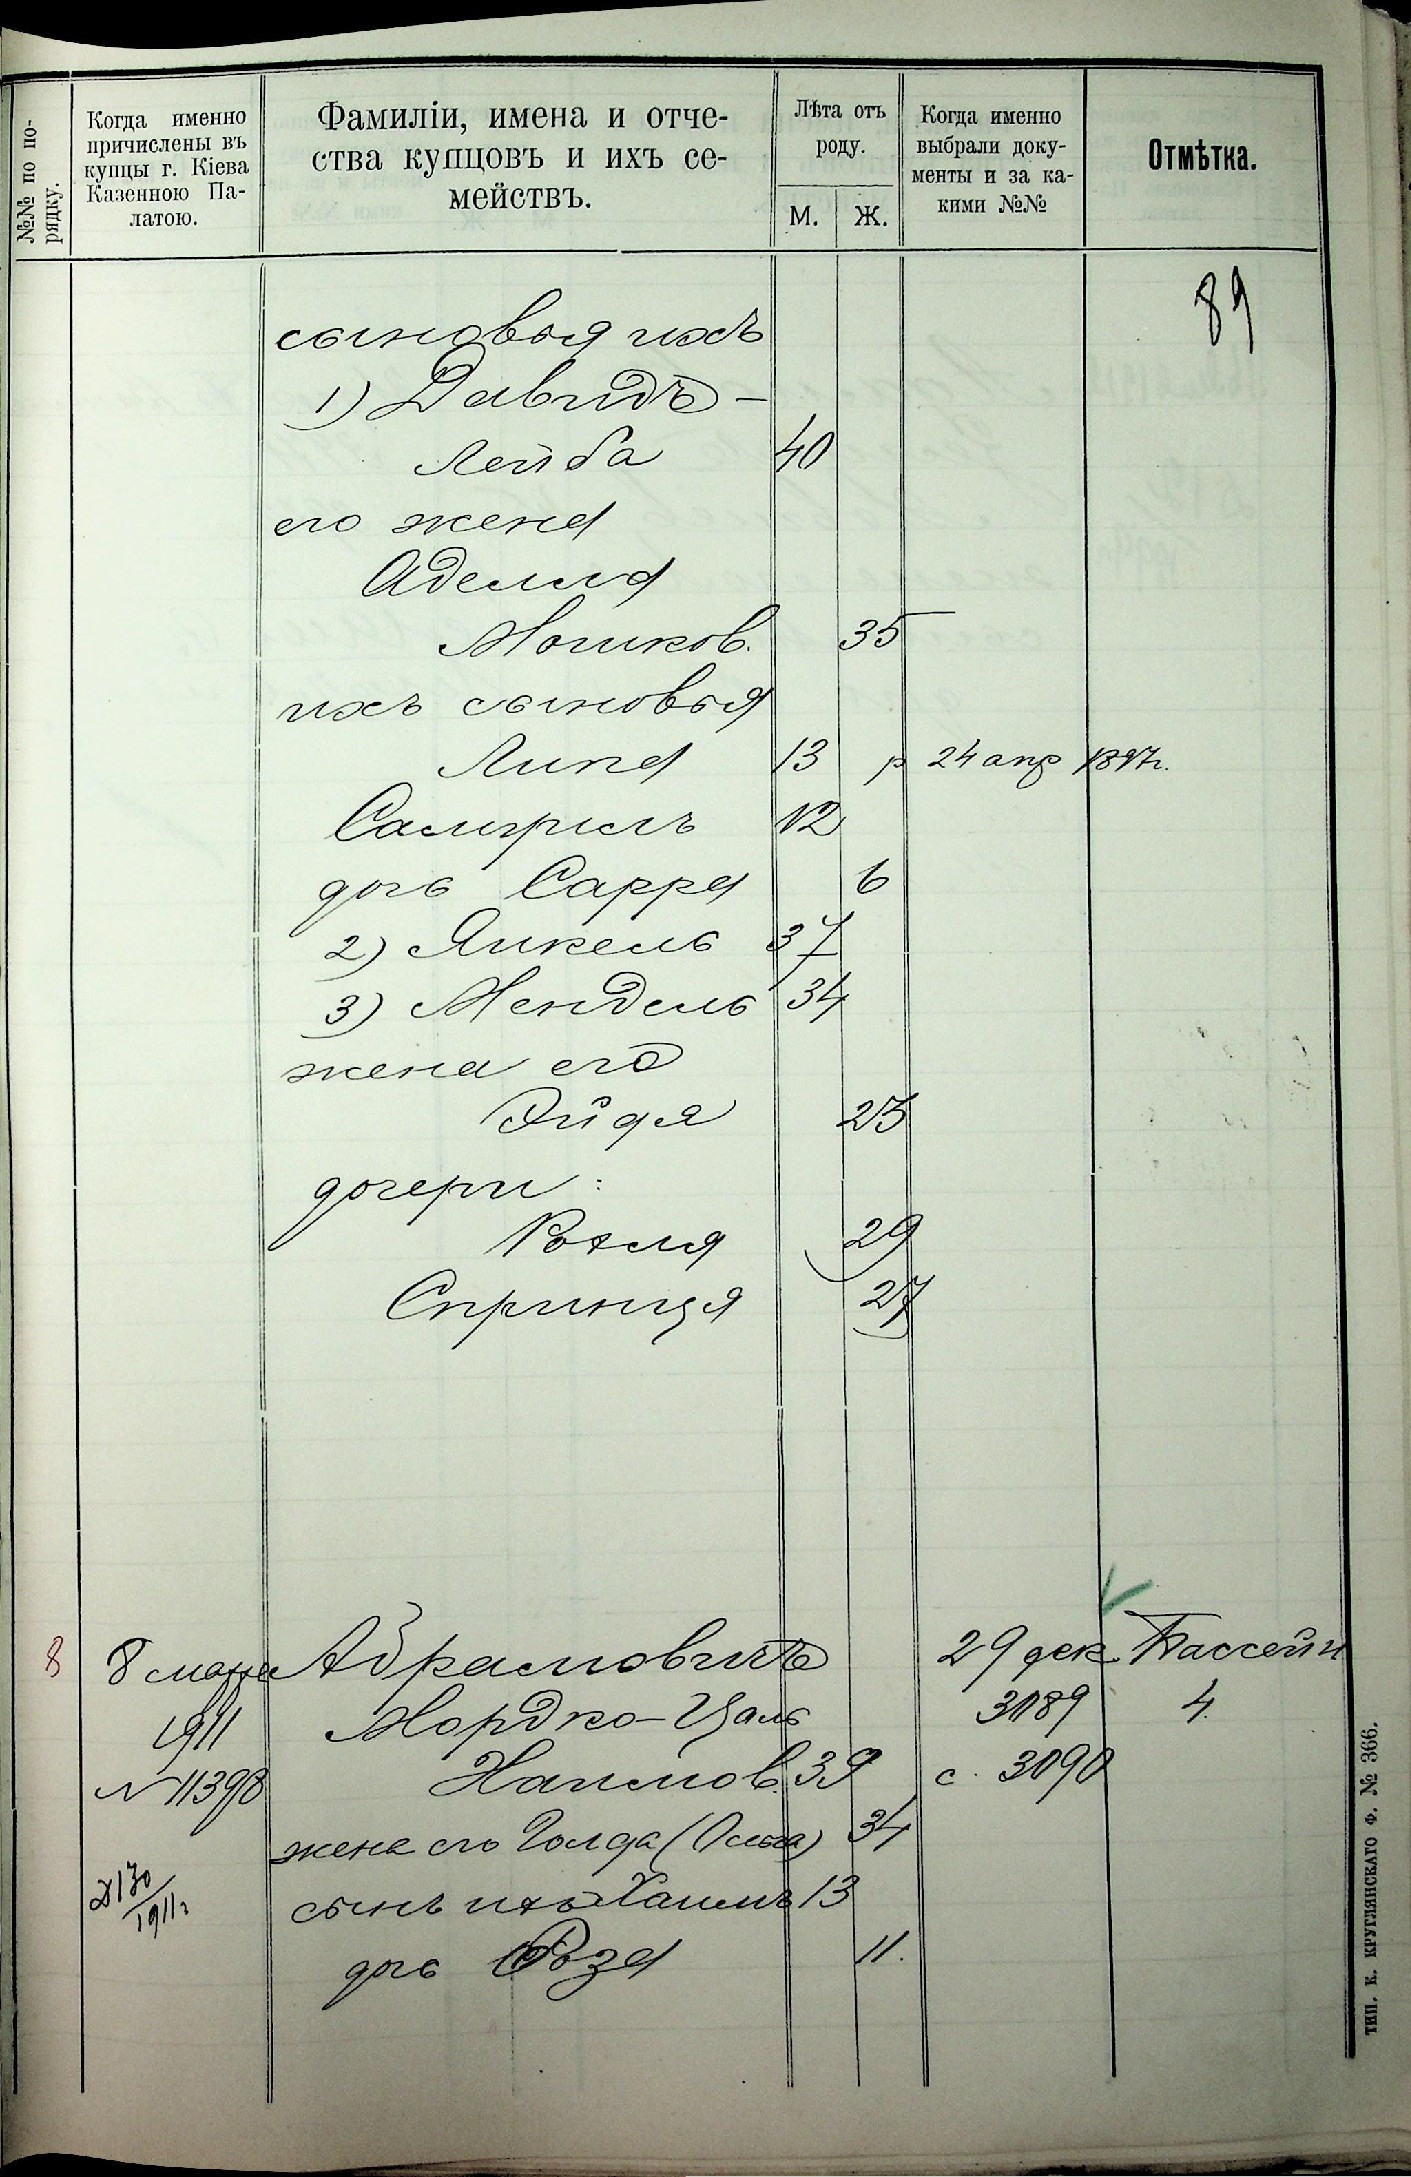 №№ по по-
рядку.
Когда именно
причислены въ
купцы г. Кіева
Казенною Па-
латою.
Фамиліи, имена и отче-
ства купцовъ и ихъ се-
мействъ.
Лѣта отъ
роду.
М. Ж.
Когда именно
выбрали доку-
менты и за ка-
кими №№
Отмѣтка.
89
сыновья ихъ
1) Давидъ –
Лейба 40
его жена
Аделия
Мошков. 35
ихъ сыновья
Липа 13 р 24 апр 1897 г.
Самуилъ 12
дочь Сарра 6
2) Янкель 37
3) Мендель 34
жена его
Эйдя 25
дочери:
Рохля 29
Спринця 27
8 8 марта Абрамовичъ 29 дек Бассейн
1911 Мордко-Цаль 3089 4.
№ 11398 Хаимов. 39 с. 3090
жена его Голда (Ольга) 34
130/1911 г
сынъ ихъ Хаимъ 13
дочь Роза 11.
ТИП. К. КРУГЛЯНСКАГО Ф. № 366.